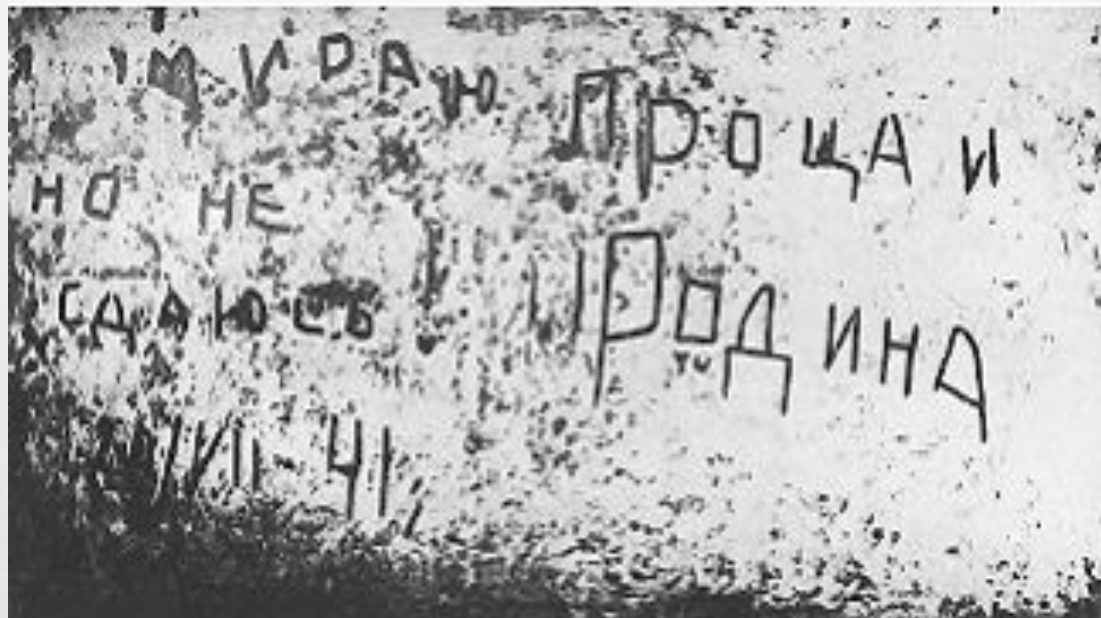 умираю
но не
сдаюсь!
Прощай
Родина
VII-41